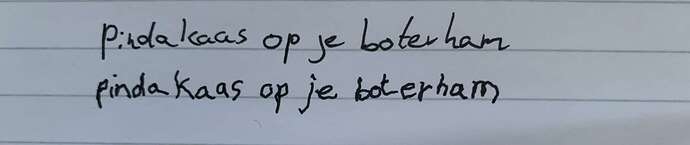 Pindakaas op je boterham
pindakaas op je boterham